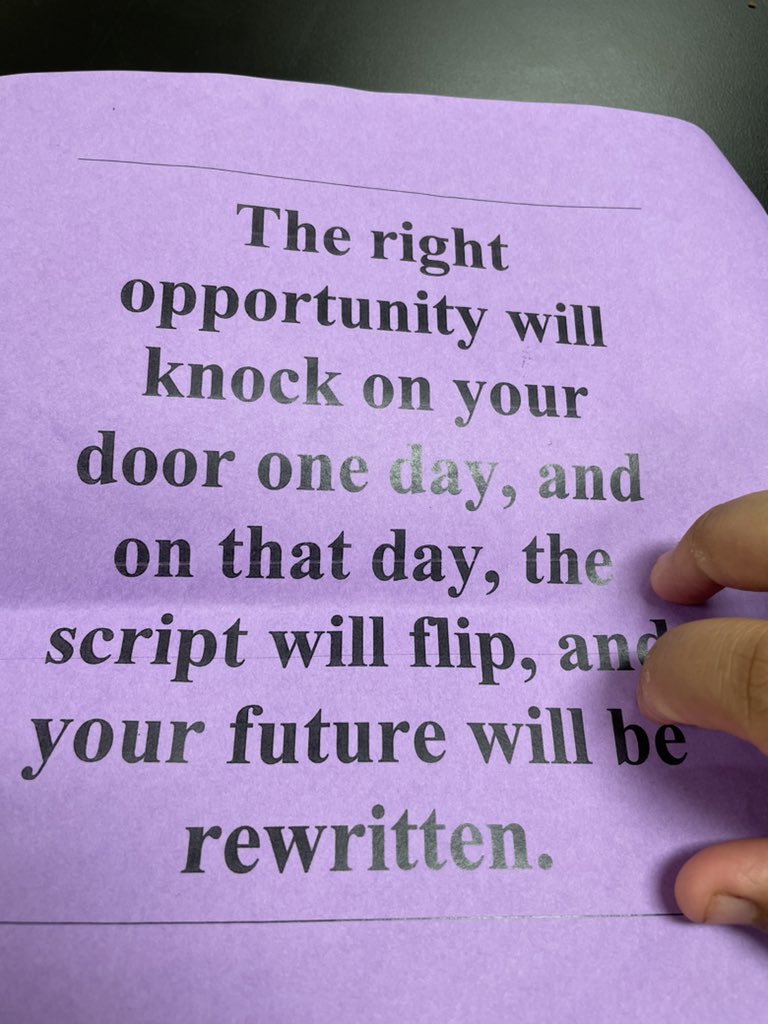 The right
opportunity will
knock on your
door one day, and
on that day, the
script will flip, and
your future will be
rewritten.